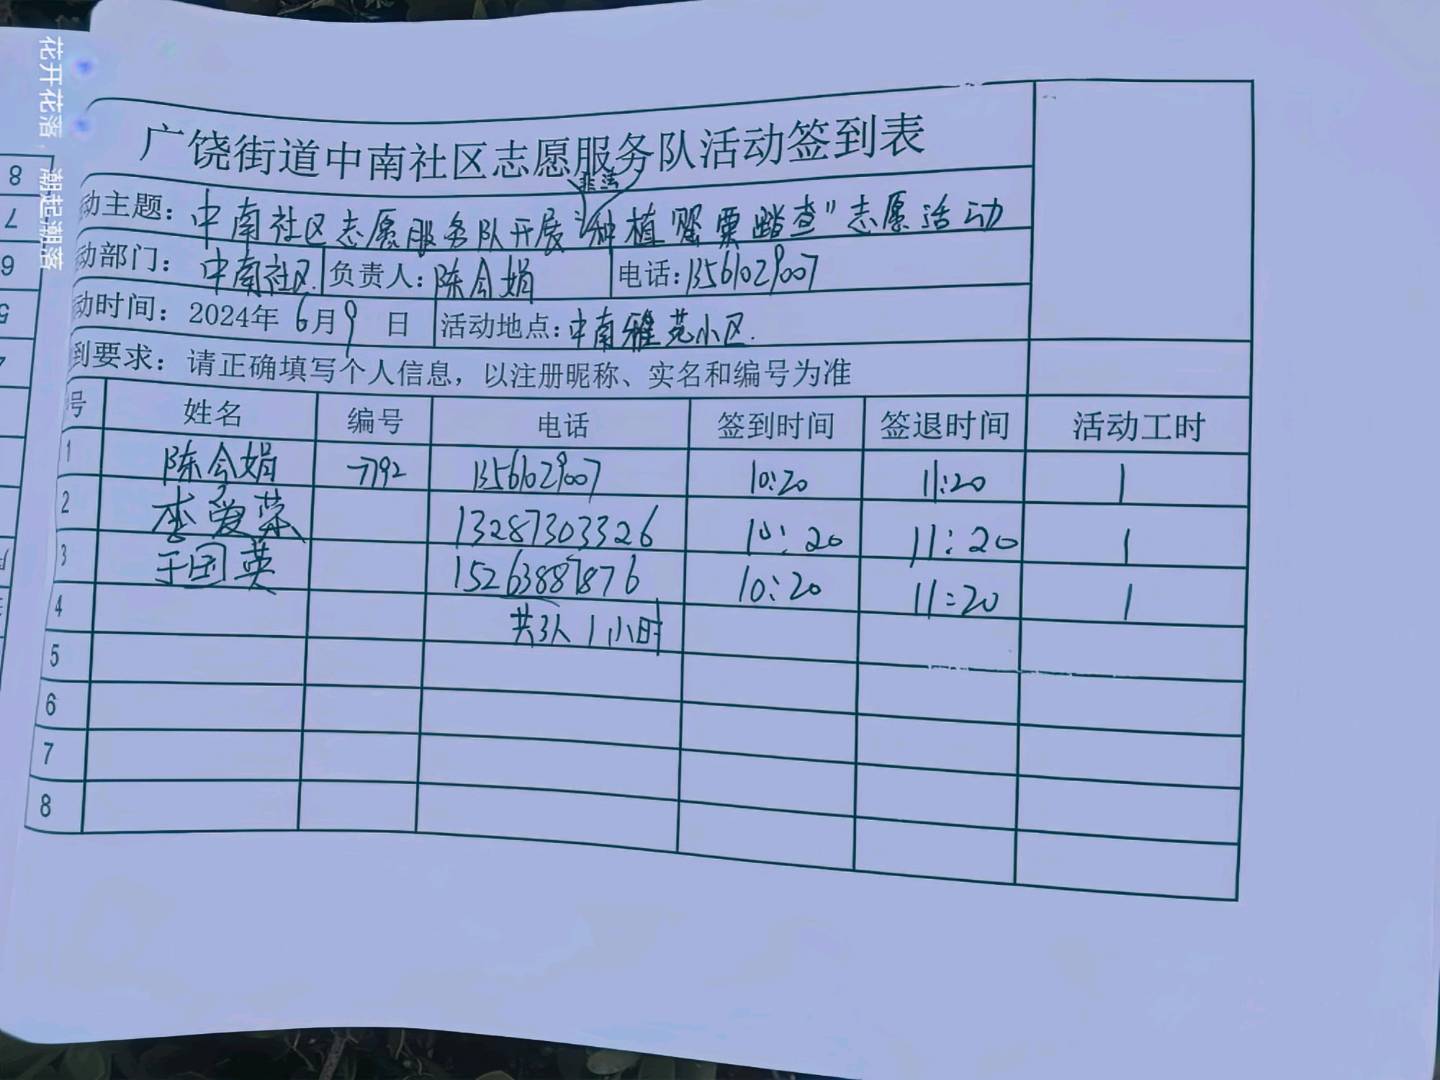 花开花落，潮起潮落
广饶街道中南社区志愿服务队活动签到表
动主题：中南社区志愿服务队开展“非法种植罂粟踏查”志愿活动
动部门：中南社区 负责人：陈令娟 电话：13561029007
动时间：2024年6月9日 活动地点：中南雅苑小区.
到要求：请正确填写个人信息，以注册昵称、实名和编号为准
号 姓名 编号 电话 签到时间 签退时间 活动工时
1 陈令娟 13561029007 10:20 11:20 1
2 李爱荣 13287303326 10:20 11:20 1
3 于国英 15263887876 10:20 11:20 1
4 共3人 1小时
5
6
7
8
8
7
6
5